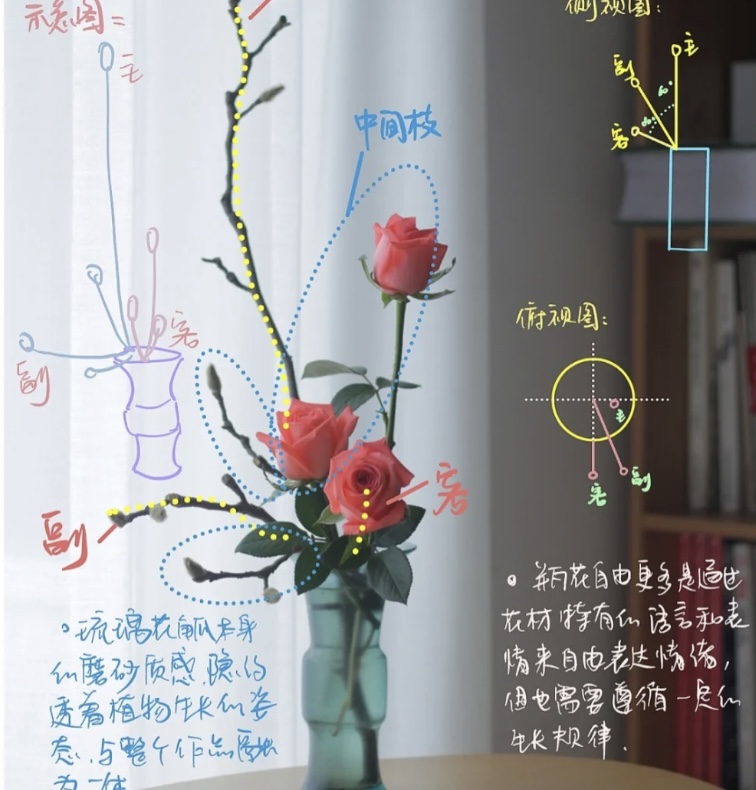 示意图=
主
副
客
中间枝
副
客
侧视图:
主
副
客
60°
俯视图:
主
客
副
•琉璃花觚本身
的磨砂质感,隐约
透着植物生长的姿
态,与整个作品融
为一体
•瓶花自由更多是通过
花材特有的语言和表
情来自由表达情绪,
但也需要遵循一定的
生长规律.